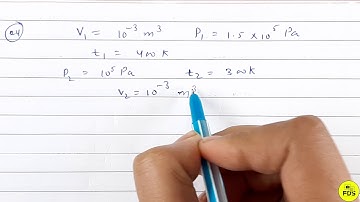 Q4 V₁ = 10⁻³ m³ P₁ = 1.5 x 10⁵ Pa
t₁ = 400 k
P₂ = 10⁵ Pa t₂ = 300 k
V₂ = 10⁻³ m³
FDS